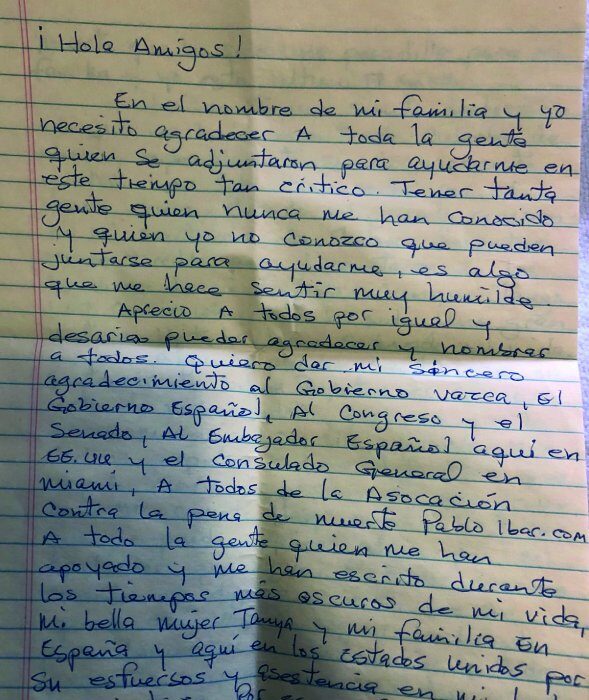 ¡Hola Amigos!
En el nombre de mi familia y yo
necesito agradecer A toda la gente
quien se adjuntaron para ayudarme en
este tiempo tan critico. Tener tanta
gente quien nunca me han conocido
y quien yo no conozco que pueden
juntarse para ayudarme, es algo
que me hace sentir muy humilde.
Aprecio A todos por igual y
desaria pueder agradecer y nombrar
a todos. Quiero dar mi sincero
agradecimiento al Gobierno vazca, El
Gobierno Español, Al Congreso y el
Senado, Al Embajador Español aquí en
EE.UU y el Consulado General en
miami, A todos de la Asocación
Contra la pena de muerte Pablo Ibar.com
A todo la gente quien me han
apoyado y me han escrito durante
los tiempos más oscuros de mi vida,
Mi bella mujer Tanya y mi familia En
España y aquí en los Estados Unidos por
Su esfuersos y asestencia en